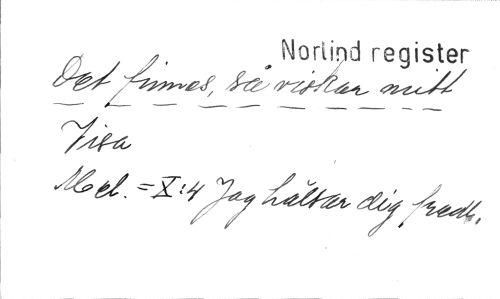 Norlind register
Det finnes, så viskar mitt
Visa
Mel. = X:4 Jag hälsar dig fredl.